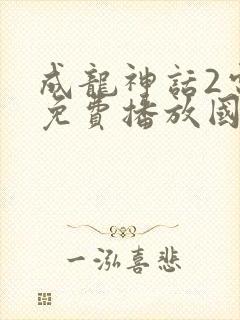 成龍神話2
免費播放國
一泓喜悲